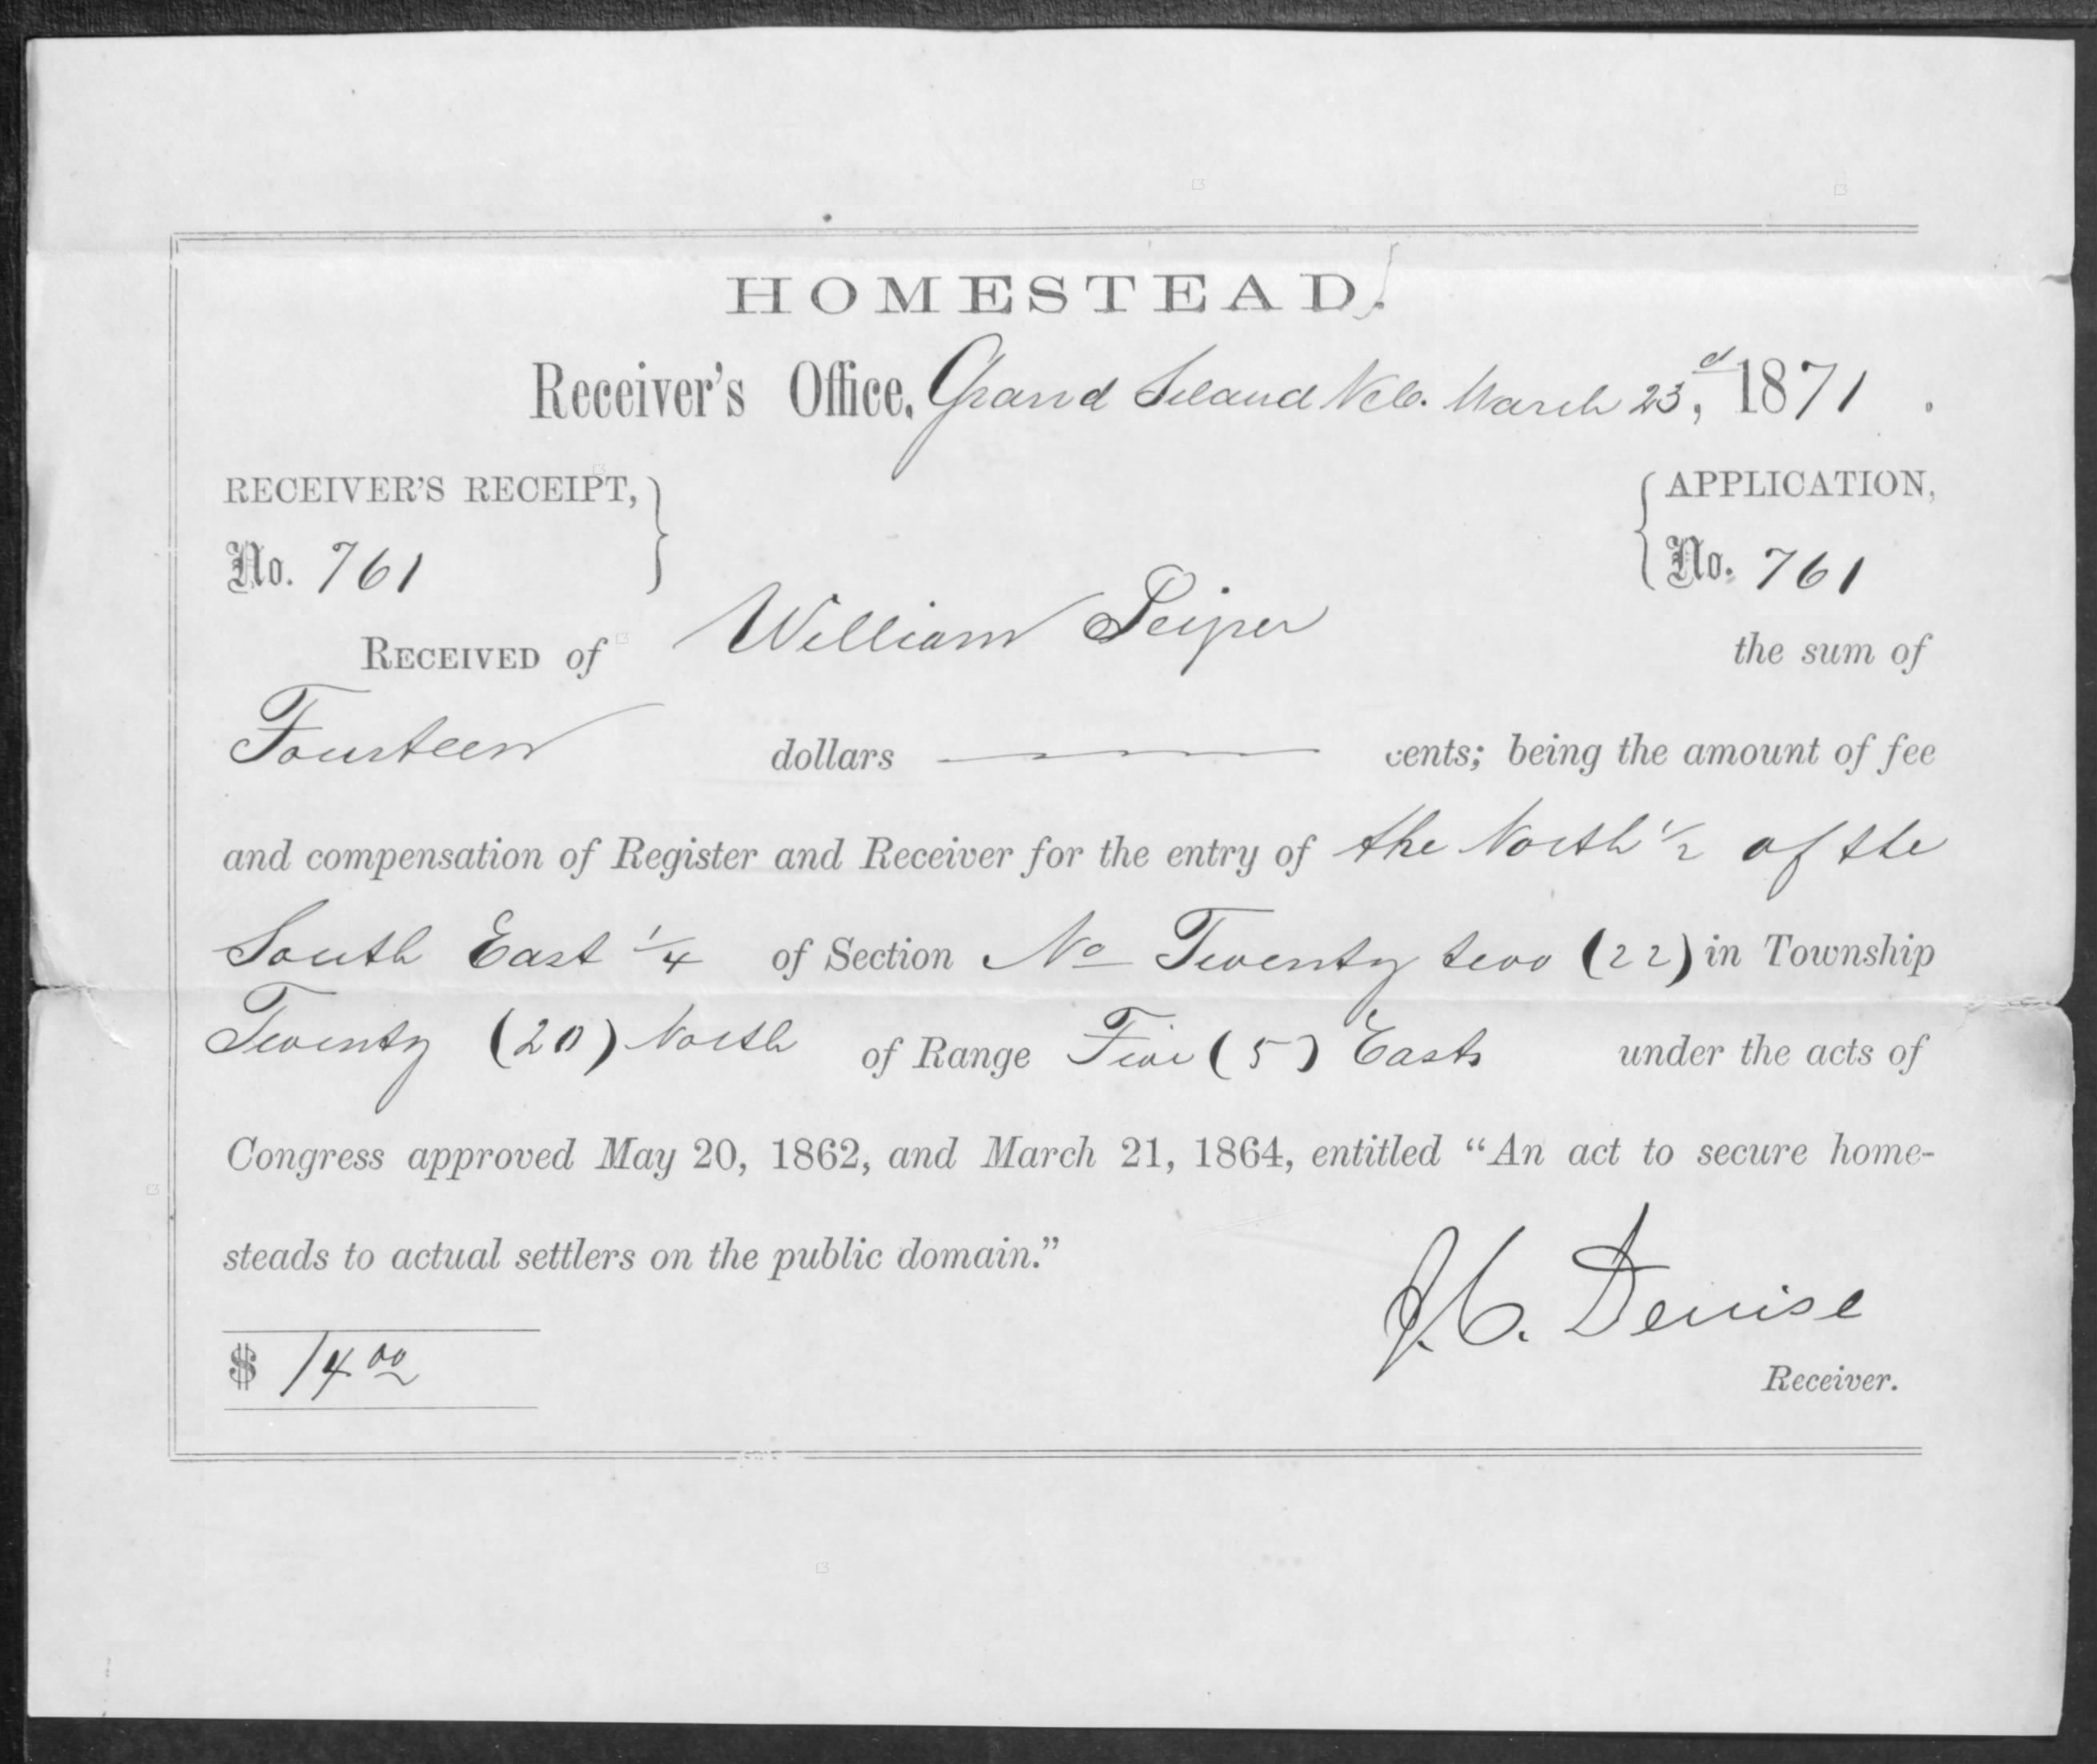 HOMESTEAD.
Receiver's Office, Grand Island Neb. March 23d, 1871.
RECEIVER'S RECEIPT, APPLICATION,
No. 761 No. 761
RECEIVED of William Peiper the sum of
Fourteen dollars —— cents; being the amount of fee
and compensation of Register and Receiver for the entry of the North 1/2 of the
South East 1/4 of Section No Twenty two (22) in Township
Twenty (20) North of Range Five (5) East under the acts of
Congress approved May 20, 1862, and March 21, 1864, entitled “An act to secure home-
steads to actual settlers on the public domain.”
J. C. Denise
$ 14 00 Receiver.